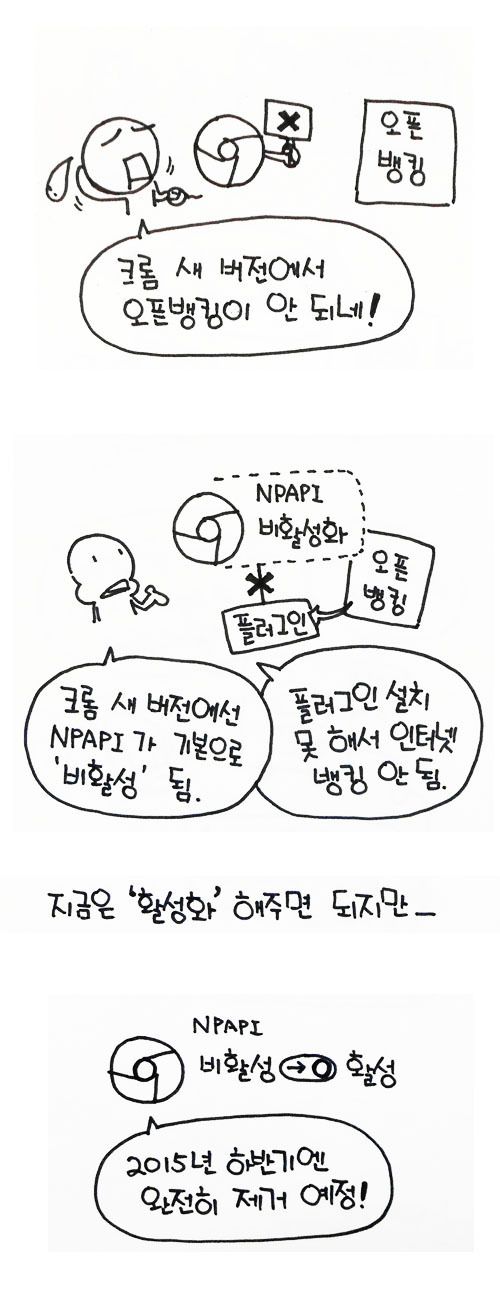 오픈
뱅킹
크롬 새 버전에서
오픈뱅킹이 안 되네!
NPAPI
비활성화
오픈
뱅킹
플러그인
크롬 새 버전에선
NPAPI가 기본으로
'비활성' 됨.
플러그인 설치
못 해서 인터넷
뱅킹 안 됨.
지금은 '활성화' 해주면 되지만_
NPAPI
비활성 → 활성
2015년 하반기엔
완전히 제거 예정!